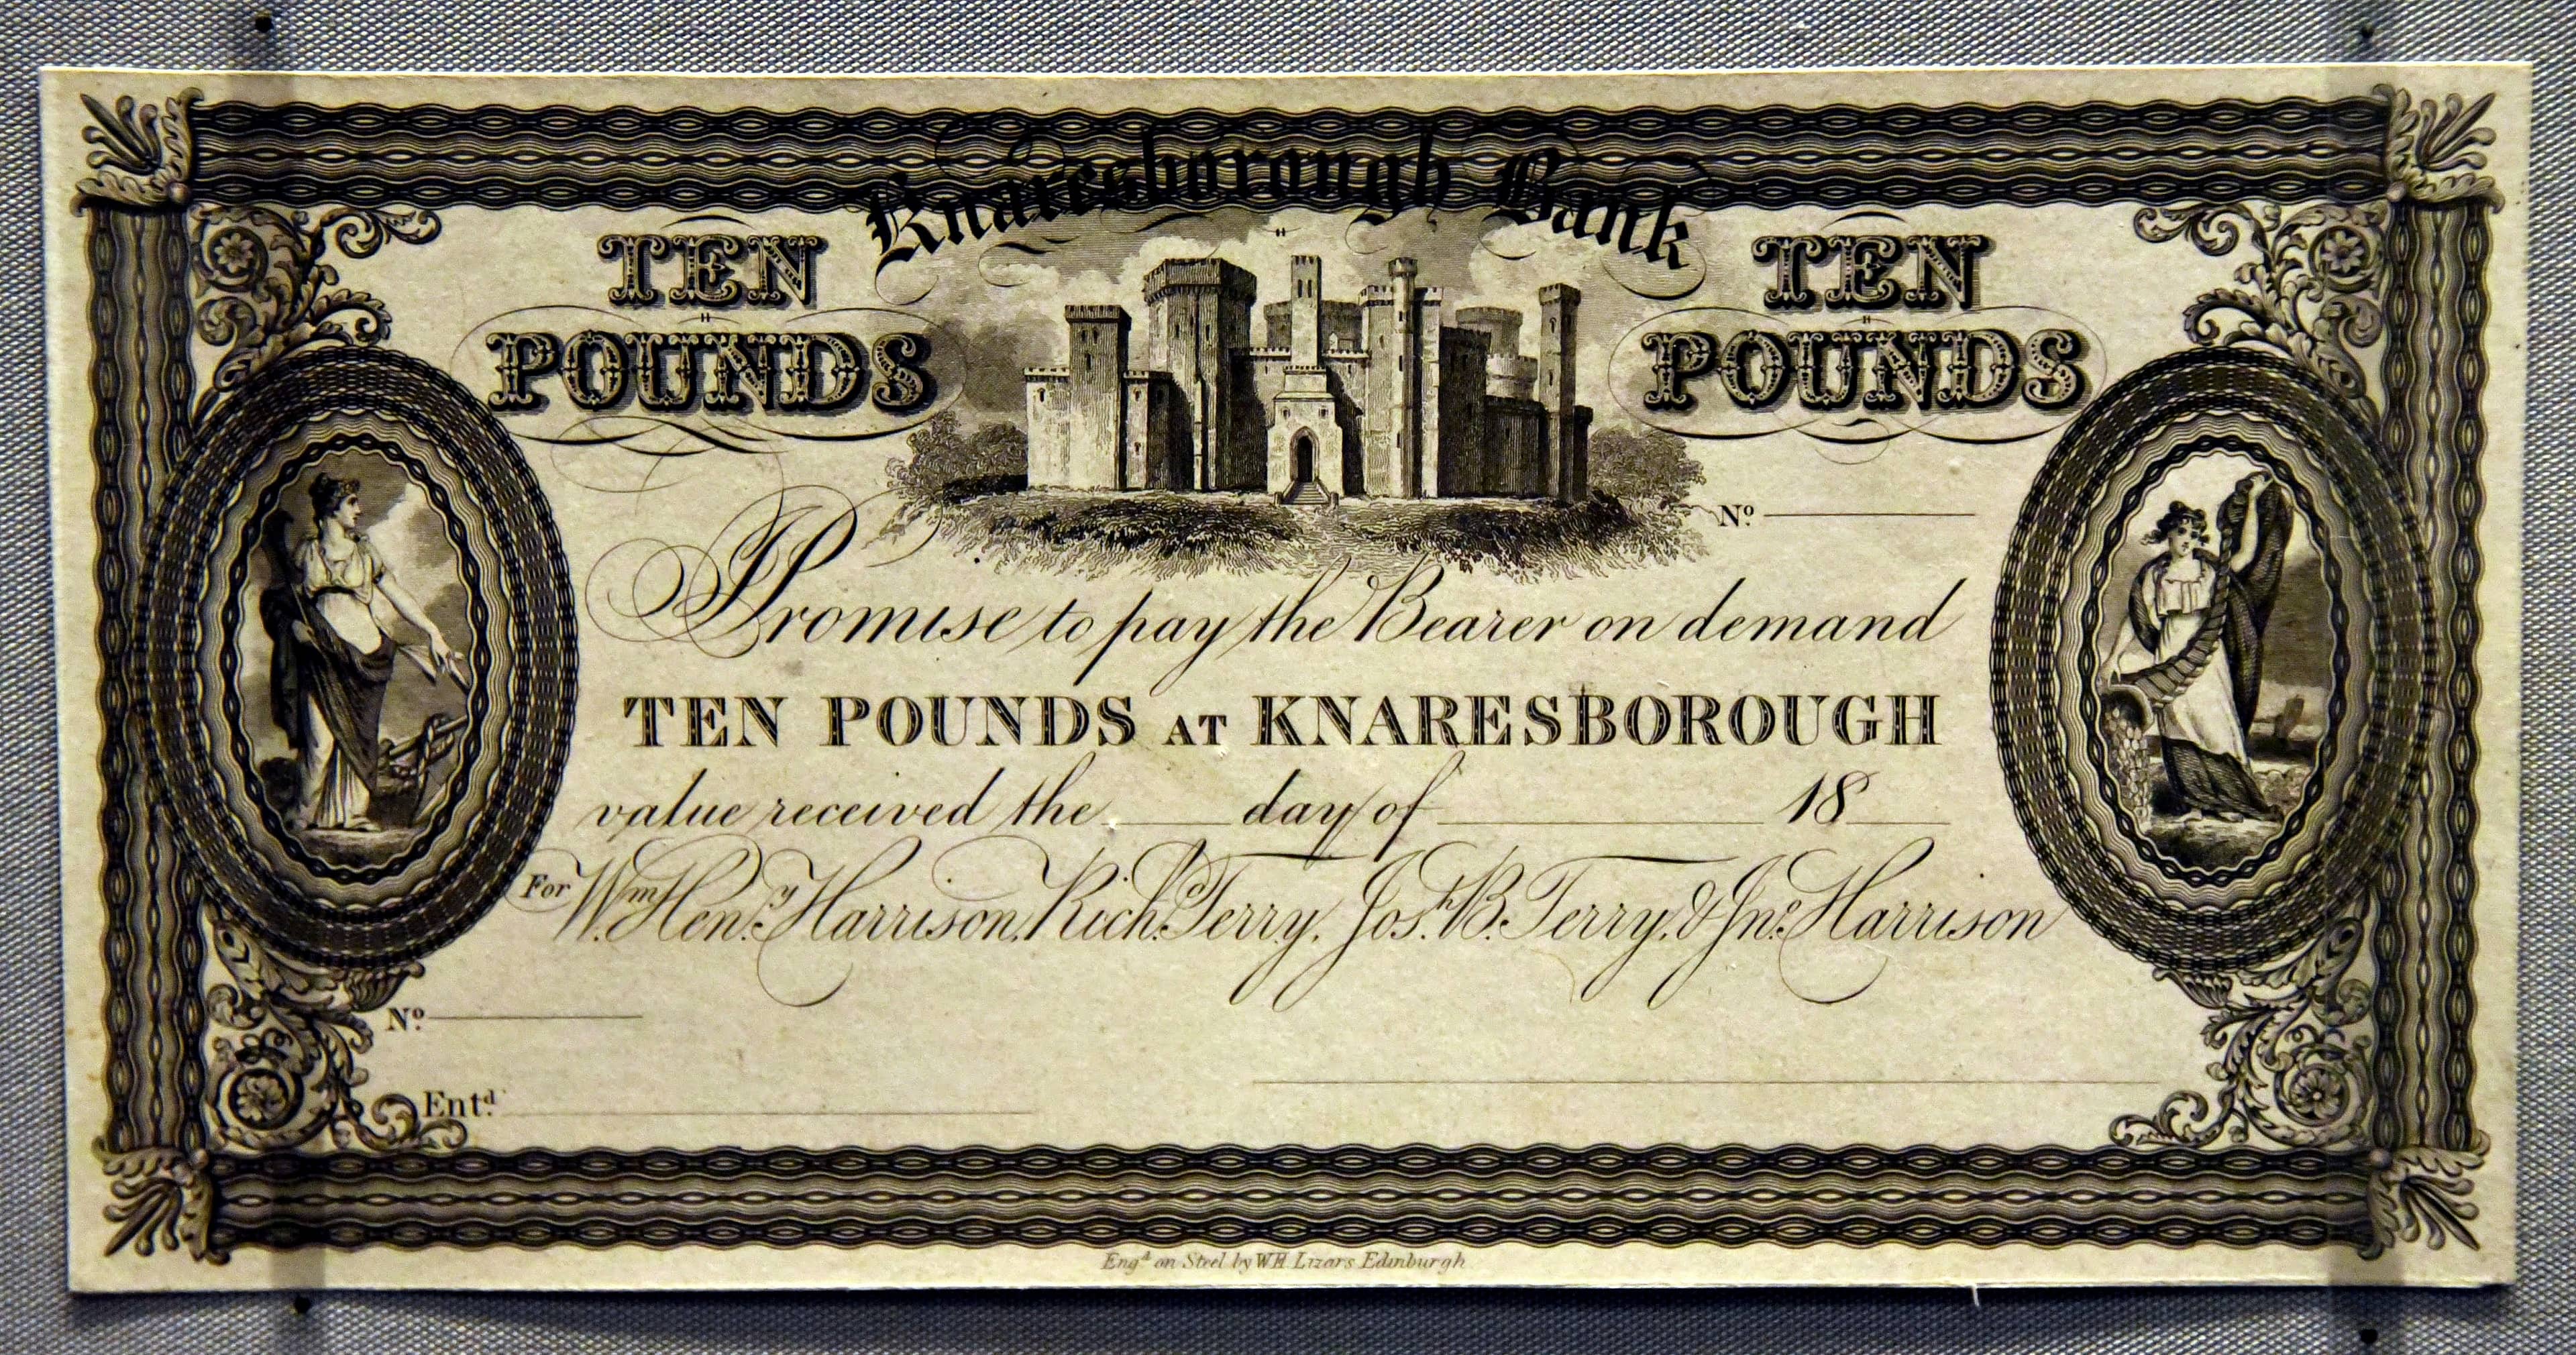 Knaresborough Bank
TEN
POUNDS
TEN
POUNDS
No.
I Promise to pay the Bearer on demand
TEN POUNDS AT KNARESBOROUGH
value received the ___ day of ___ 18__
For Wm. Heny. Harrison, Richd. Terry, Josh. B. Terry, & Jno. Harrison
No.
Entd.
Engd. on Steel by W.H. Lizars Edinburgh